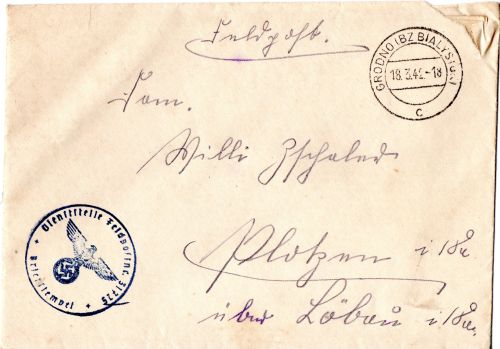 Feldpost.
GRODNO (BZ BIALYSTOK)
18.3.42.-18
c
Fam.
Willi Zschaler
Plotzen i/Sa
über Löbau i/Sa.
Dienststelle Feldpostnr.
Briefstempel